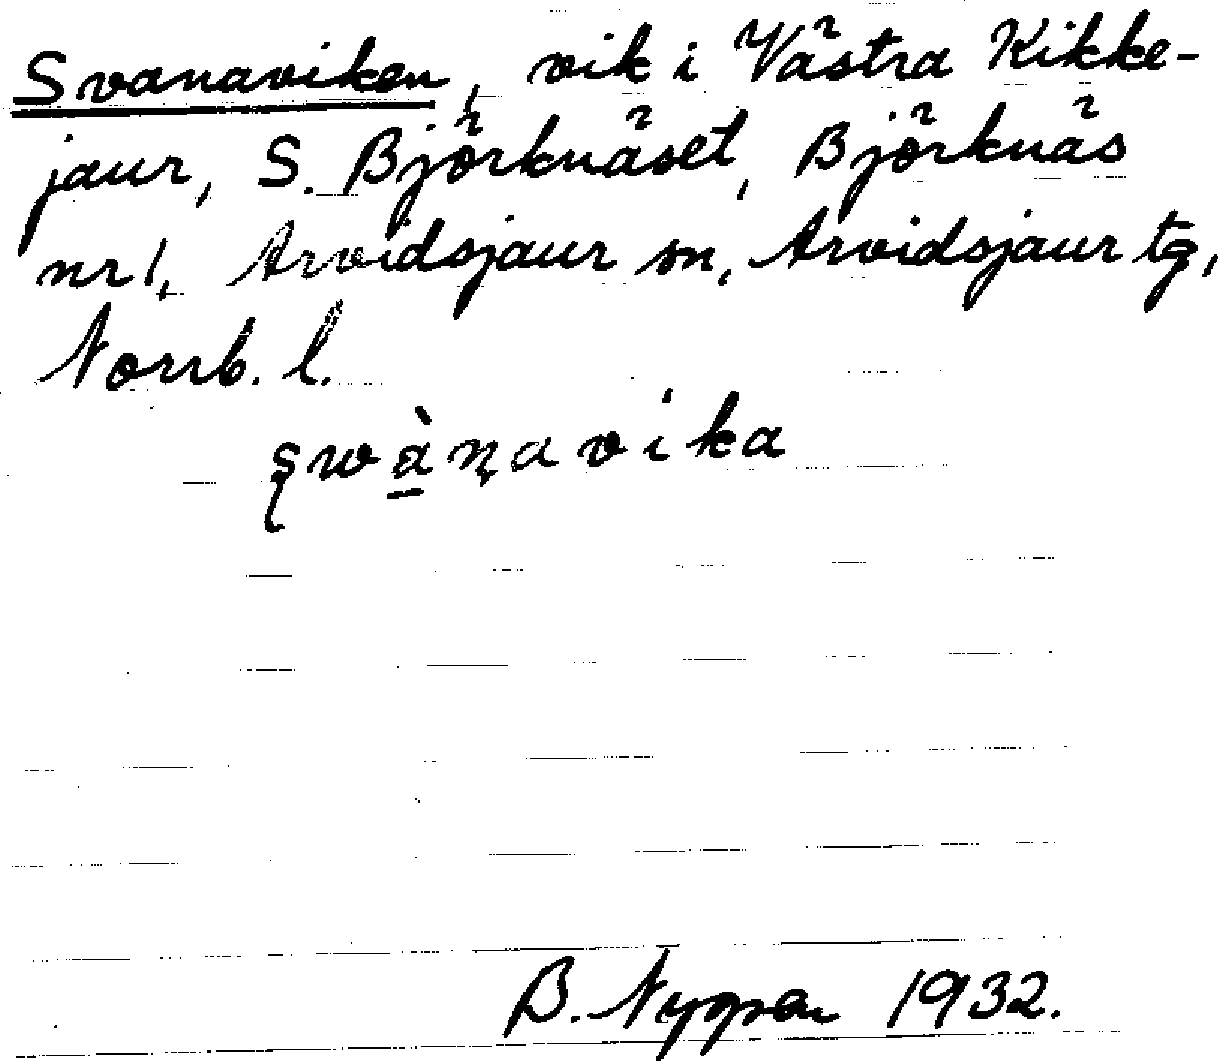 Svanaviken, vik i Västra Kikke-
jaur, S. Björknäset, Björknäs
nr 1, Arvidsjaur sn, Arvidsjaur tg,
Norrb. l.
șwà̱ṇavika
B. Nygren 1932.